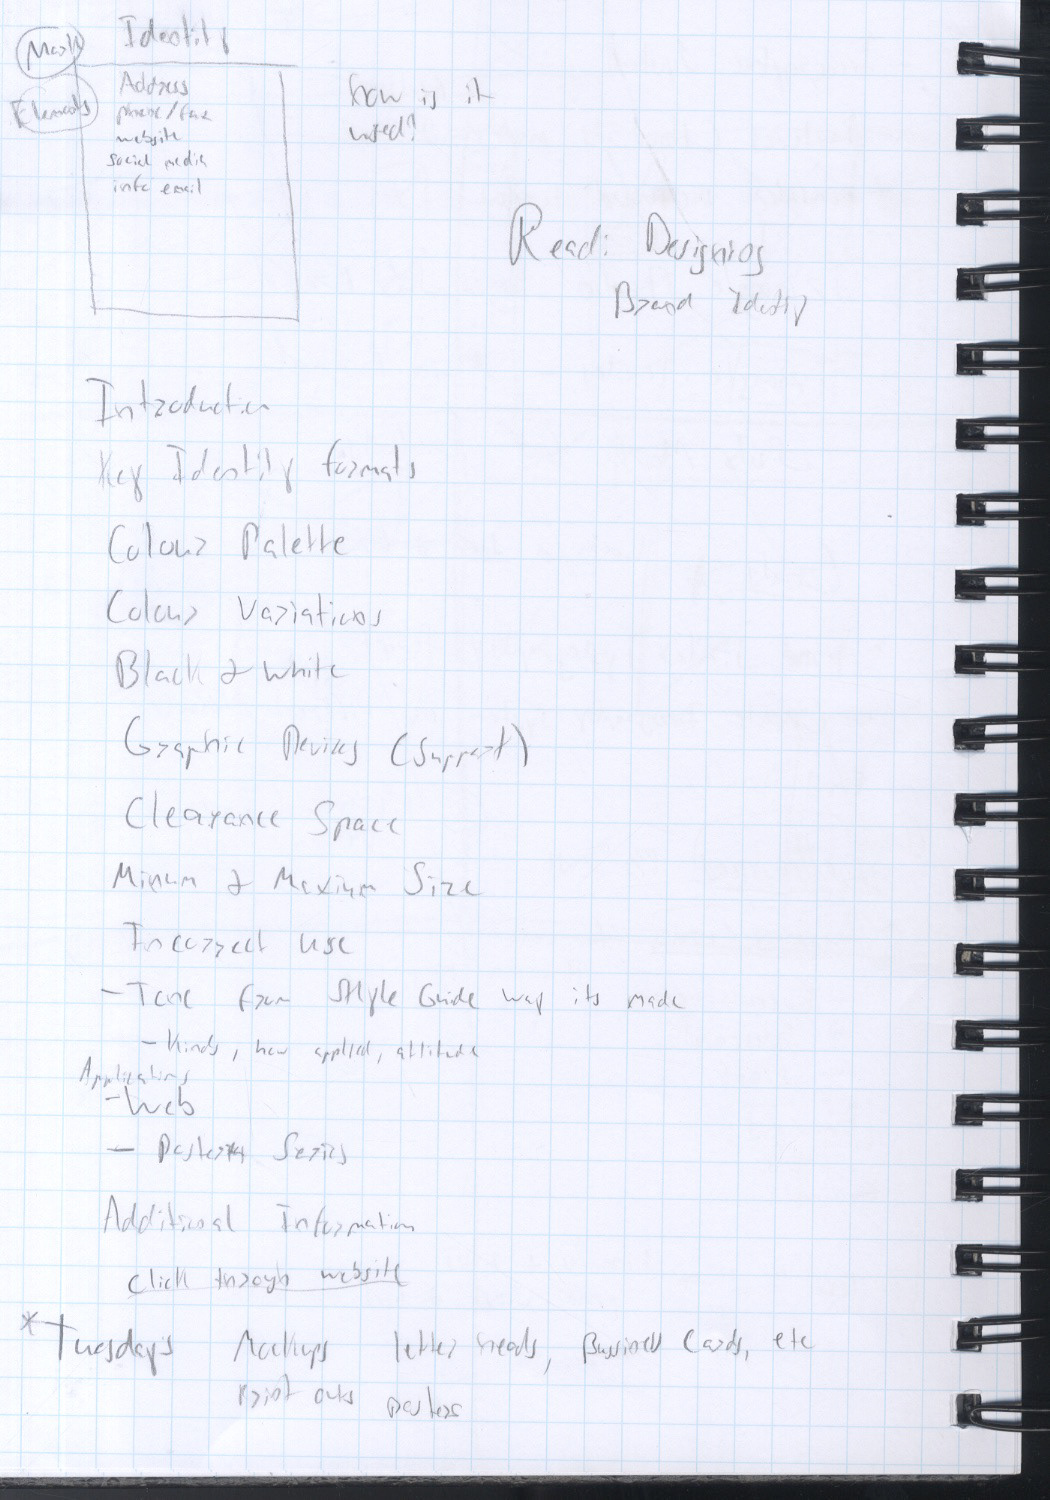 Identity
Mark
Elements
Address
phone/fax
website
social media
info email
how is it
used?
Read: Designing
Brand Identity
Introduction
Key Identity formats
Colour Palette
Colour Variations
Black & White
Graphic Devices (Support)
Clearance Space
Minum & Maxium Size
Incorrect use
- Tone from Style Guide way its made
- Kinds, how applied, attitude
Applications
- Web
- Poster Series
Additional Information
Click through website
*Tuesday's Mockups letter heads, Bussiness Cards, etc
print outs posters